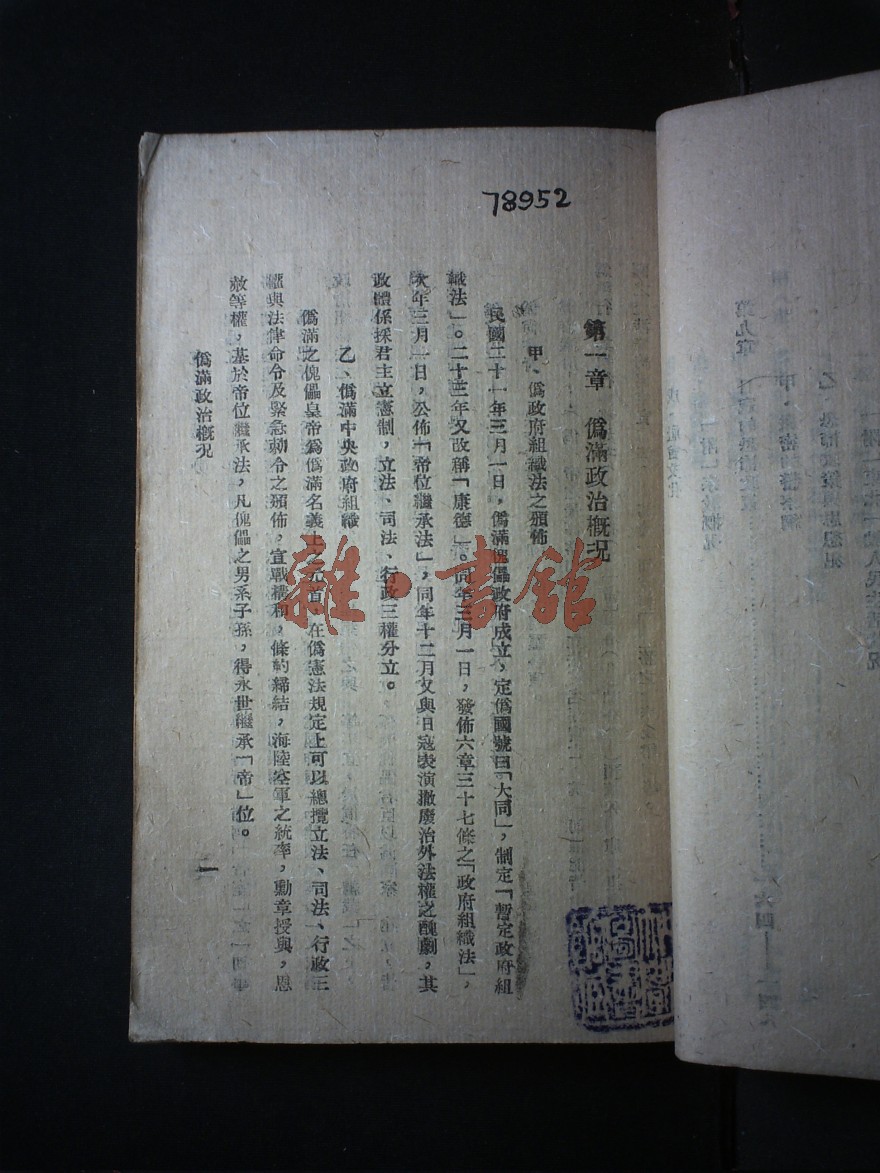 78952
第一章　僞滿政治概況
甲、僞政府組織法之頒佈
民國二十一年三月一日，僞滿傀儡政府成立，定僞國號曰「大同」，制定「暫定政府組
織法」。二十三年又改稱「康德」。同年三月一日，發佈六章三十七條之「政府組織法」，
次年三月一日，公佈「帝位繼承法」，同年十二月又與日寇表演撤廢治外法權之醜劇，其
政體係採君主立憲制，立法、司法、行政三權分立。
乙、僞滿中央政府組織
僞滿之傀儡皇帝爲僞滿名義上之元首，在僞憲法規定上可以總攬立法、司法、行政三
權與法律命令及緊急勅令之頒佈，宣戰構和，條約締結，海陸空軍之統率，勳章授與，恩
赦等權，基於帝位繼承法，凡傀儡之男系子孫，得永世繼承「帝」位。
僞滿政治概況
一
雜·書館